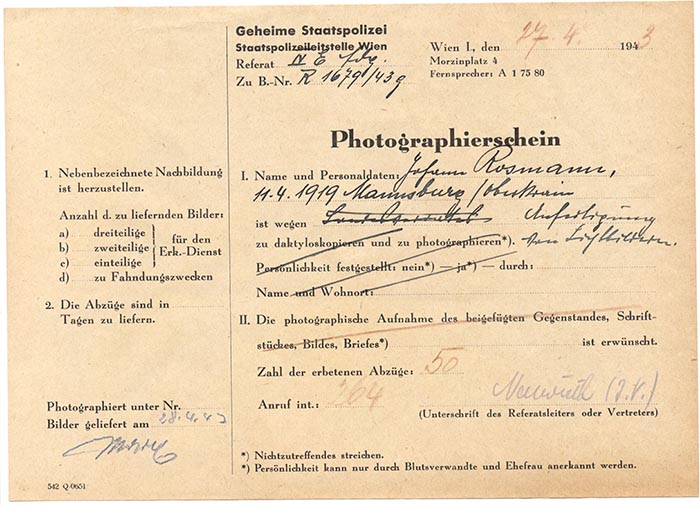 Geheime Staatspolizei
Staatspolizeileitstelle Wien
Referat IV E
Zu B.-Nr. R 1679/43g
Wien I., den 27. 4. 1943
Morzinplatz 4
Fernsprecher: A 1 75 80
Photographierschein
1. Nebenbezeichnete Nachbildung
ist herzustellen.
Anzahl d. zu liefernden Bilder:
a) dreiteilige
b) zweiteilige
c) einteilige
für den
Erk.-Dienst
d) zu Fahndungszwecken
2. Die Abzüge sind in
Tagen zu liefern.
Photographiert unter Nr.
Bilder geliefert am 28. 4. 43
542 Q/0651
I. Name und Personaldaten: Johann Rosmann,
11. 4. 1919 Mannsburg / Oberkrain
ist wegen Anfertigung
zu daktyloskopieren und zu photographieren*). von Lichtbildern.
Persönlichkeit festgestellt: nein*) — ja*) — durch:
Name und Wohnort:
II. Die photographische Aufnahme des beigefügten Gegenstandes, Schrift-
stückes, Bildes, Briefes*) ist erwünscht.
Zahl der erbetenen Abzüge: 50
Anruf int.: 364
(Unterschrift des Referatsleiters oder Vertreters)
*) Nichtzutreffendes streichen.
*) Persönlichkeit kann nur durch Blutsverwandte und Ehefrau anerkannt werden.